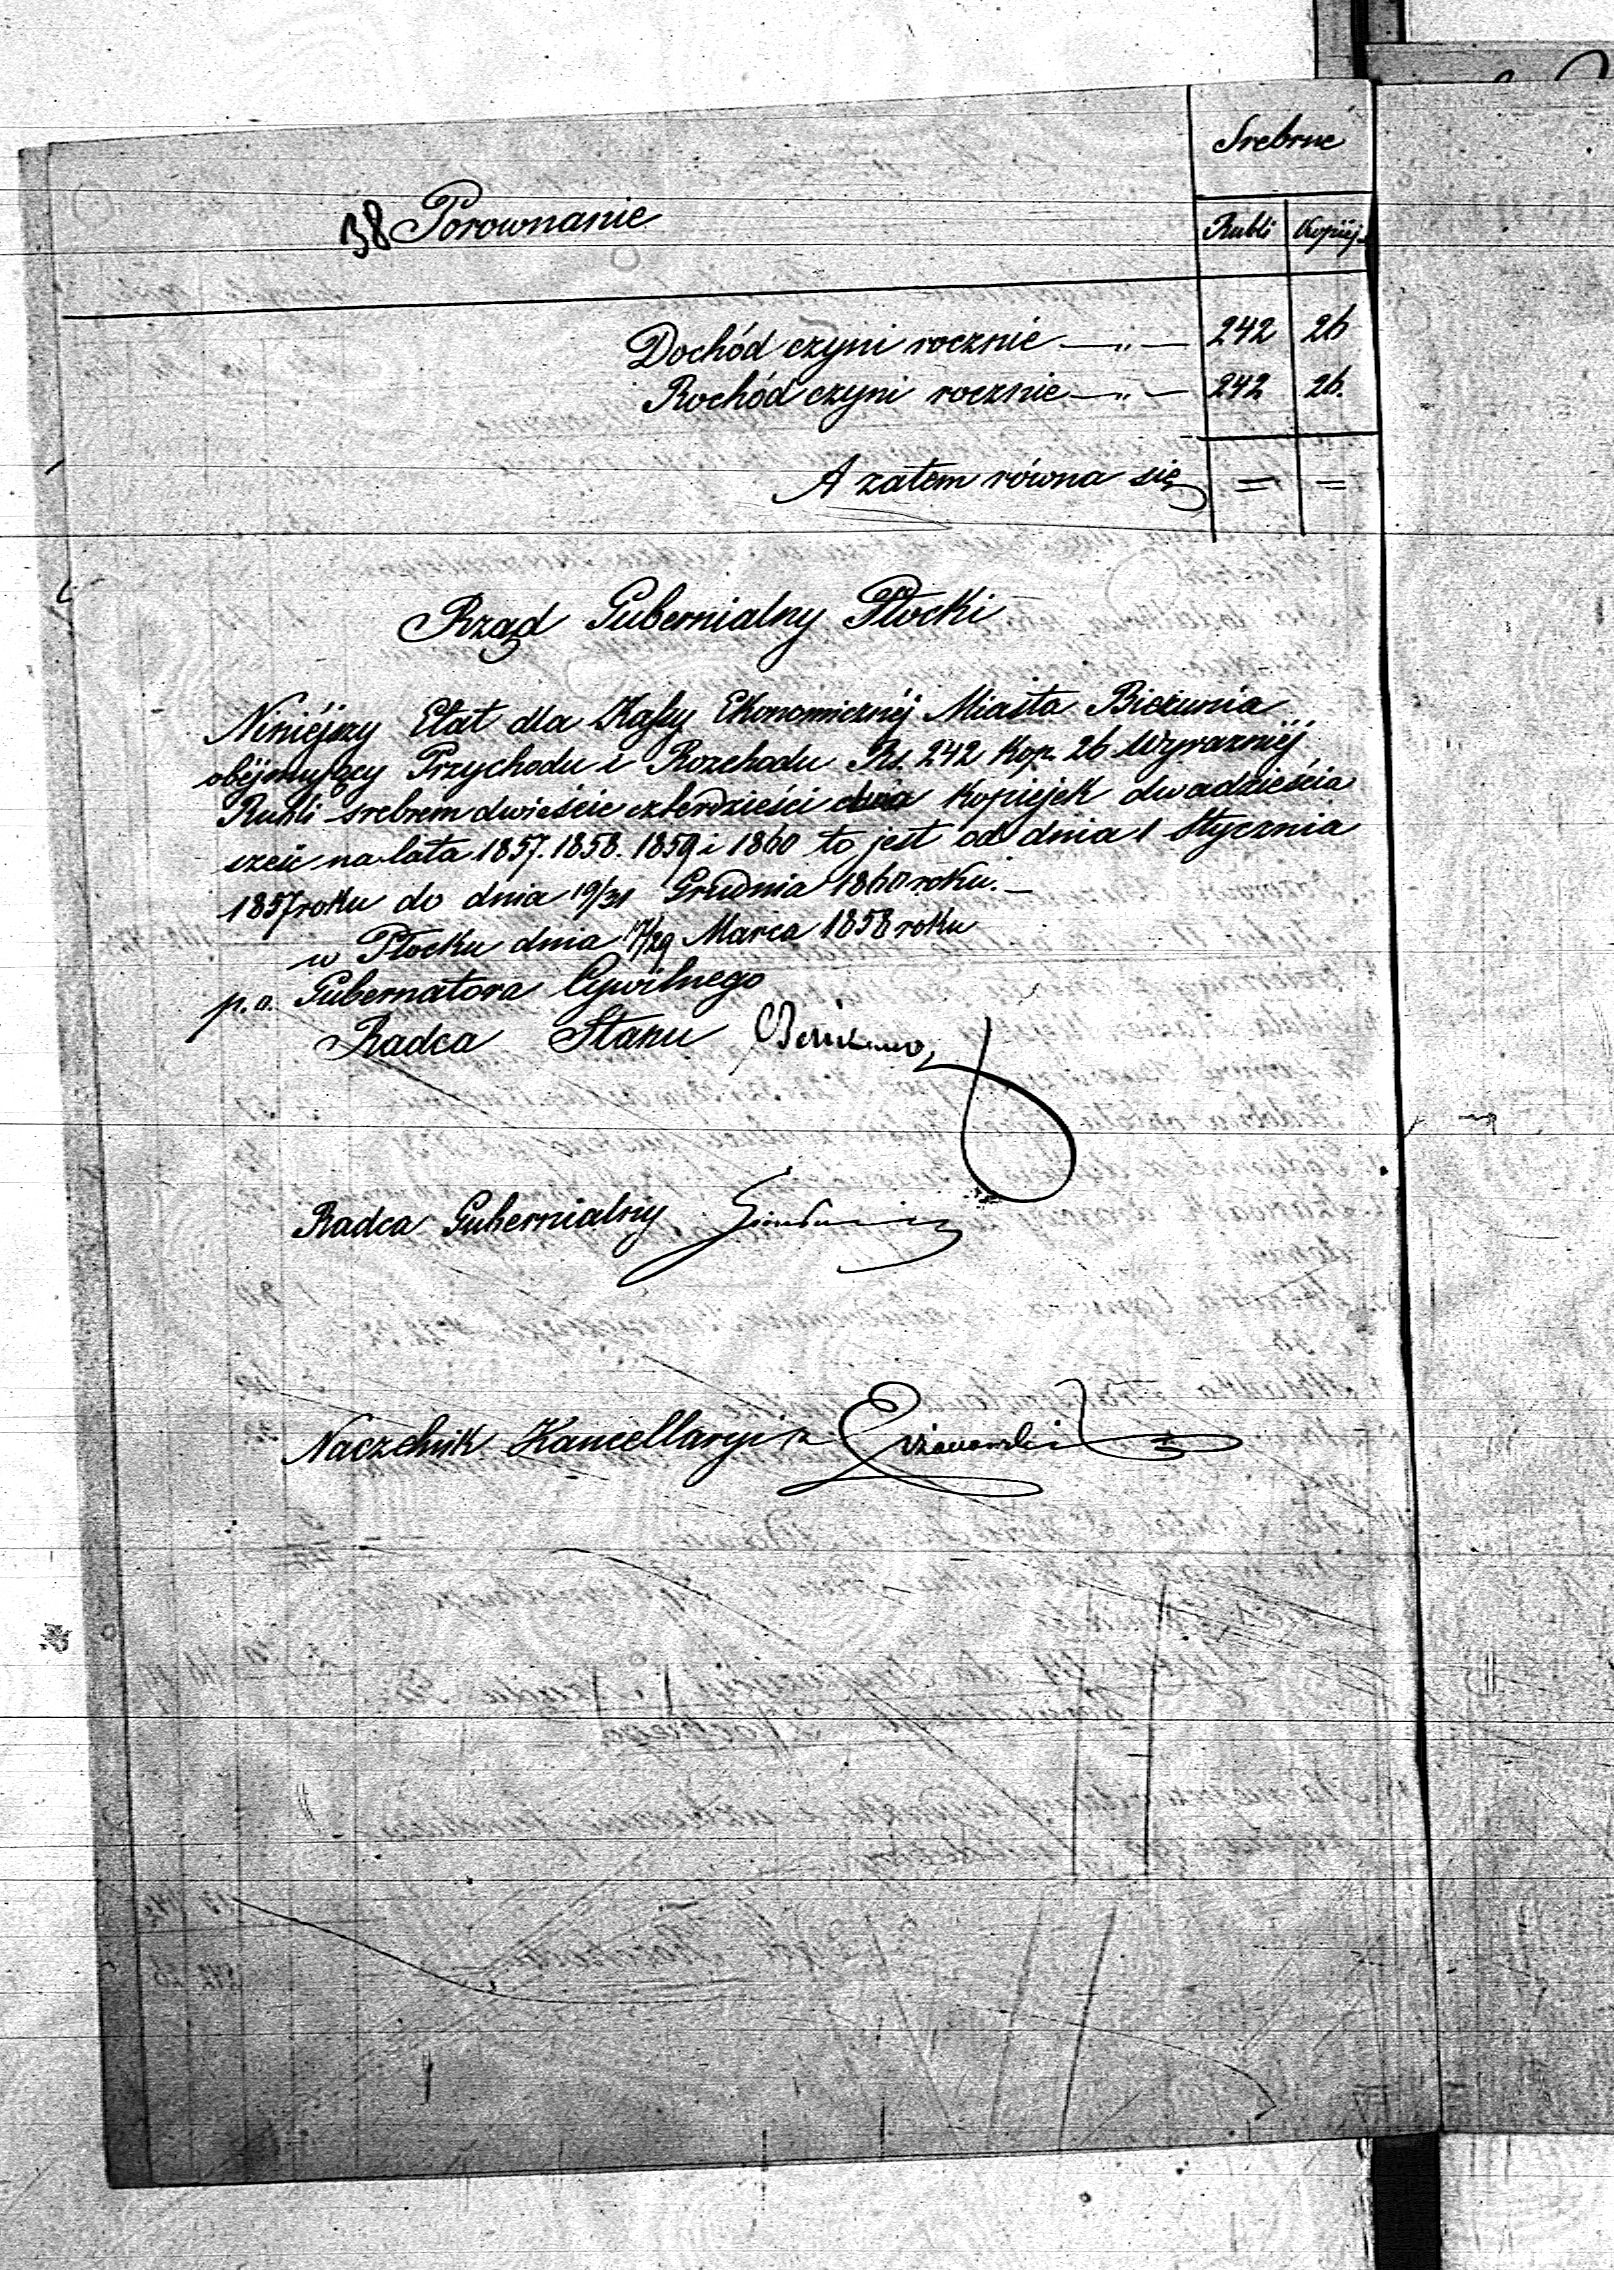 Srebrne
38 Porownanie
Rubli Kopiej.
Dochód czyni rocznie — „ — 242 26
Rochód czyni rocznie — „ — 242 26.
A zatem równa się = =
Rząd Gubernialny Płocki
Niniéjszy Etat dla Kassy Ekonomicznéj Miasta Bieżunia
obéjmujący Przychodu i Rozchodu Rs. 242 Kop. 26 Wyrazniéj
Rubli srebrem dwieście czterdzieści dwa Kopiejek dwadzieścia
sześć na lata 1857. 1858. 1859 i 1860 to jest od dnia 1 Stycznia
1857 roku do dnia 19/31 Grudnia 1860 roku. —
w Płocku dnia 17/29 Marca 1858 roku
p.o. Gubernatora Cywilnego
Radca Stanu
Radca Gubernialny
Naczelnik Kancellaryi